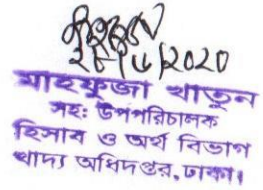 ২৮/৬/2020
মাহফুজা খাতুন
সহঃ উপপরিচালক
হিসাব ও অর্থ বিভাগ
খাদ্য অধিদপ্তর, ঢাকা।